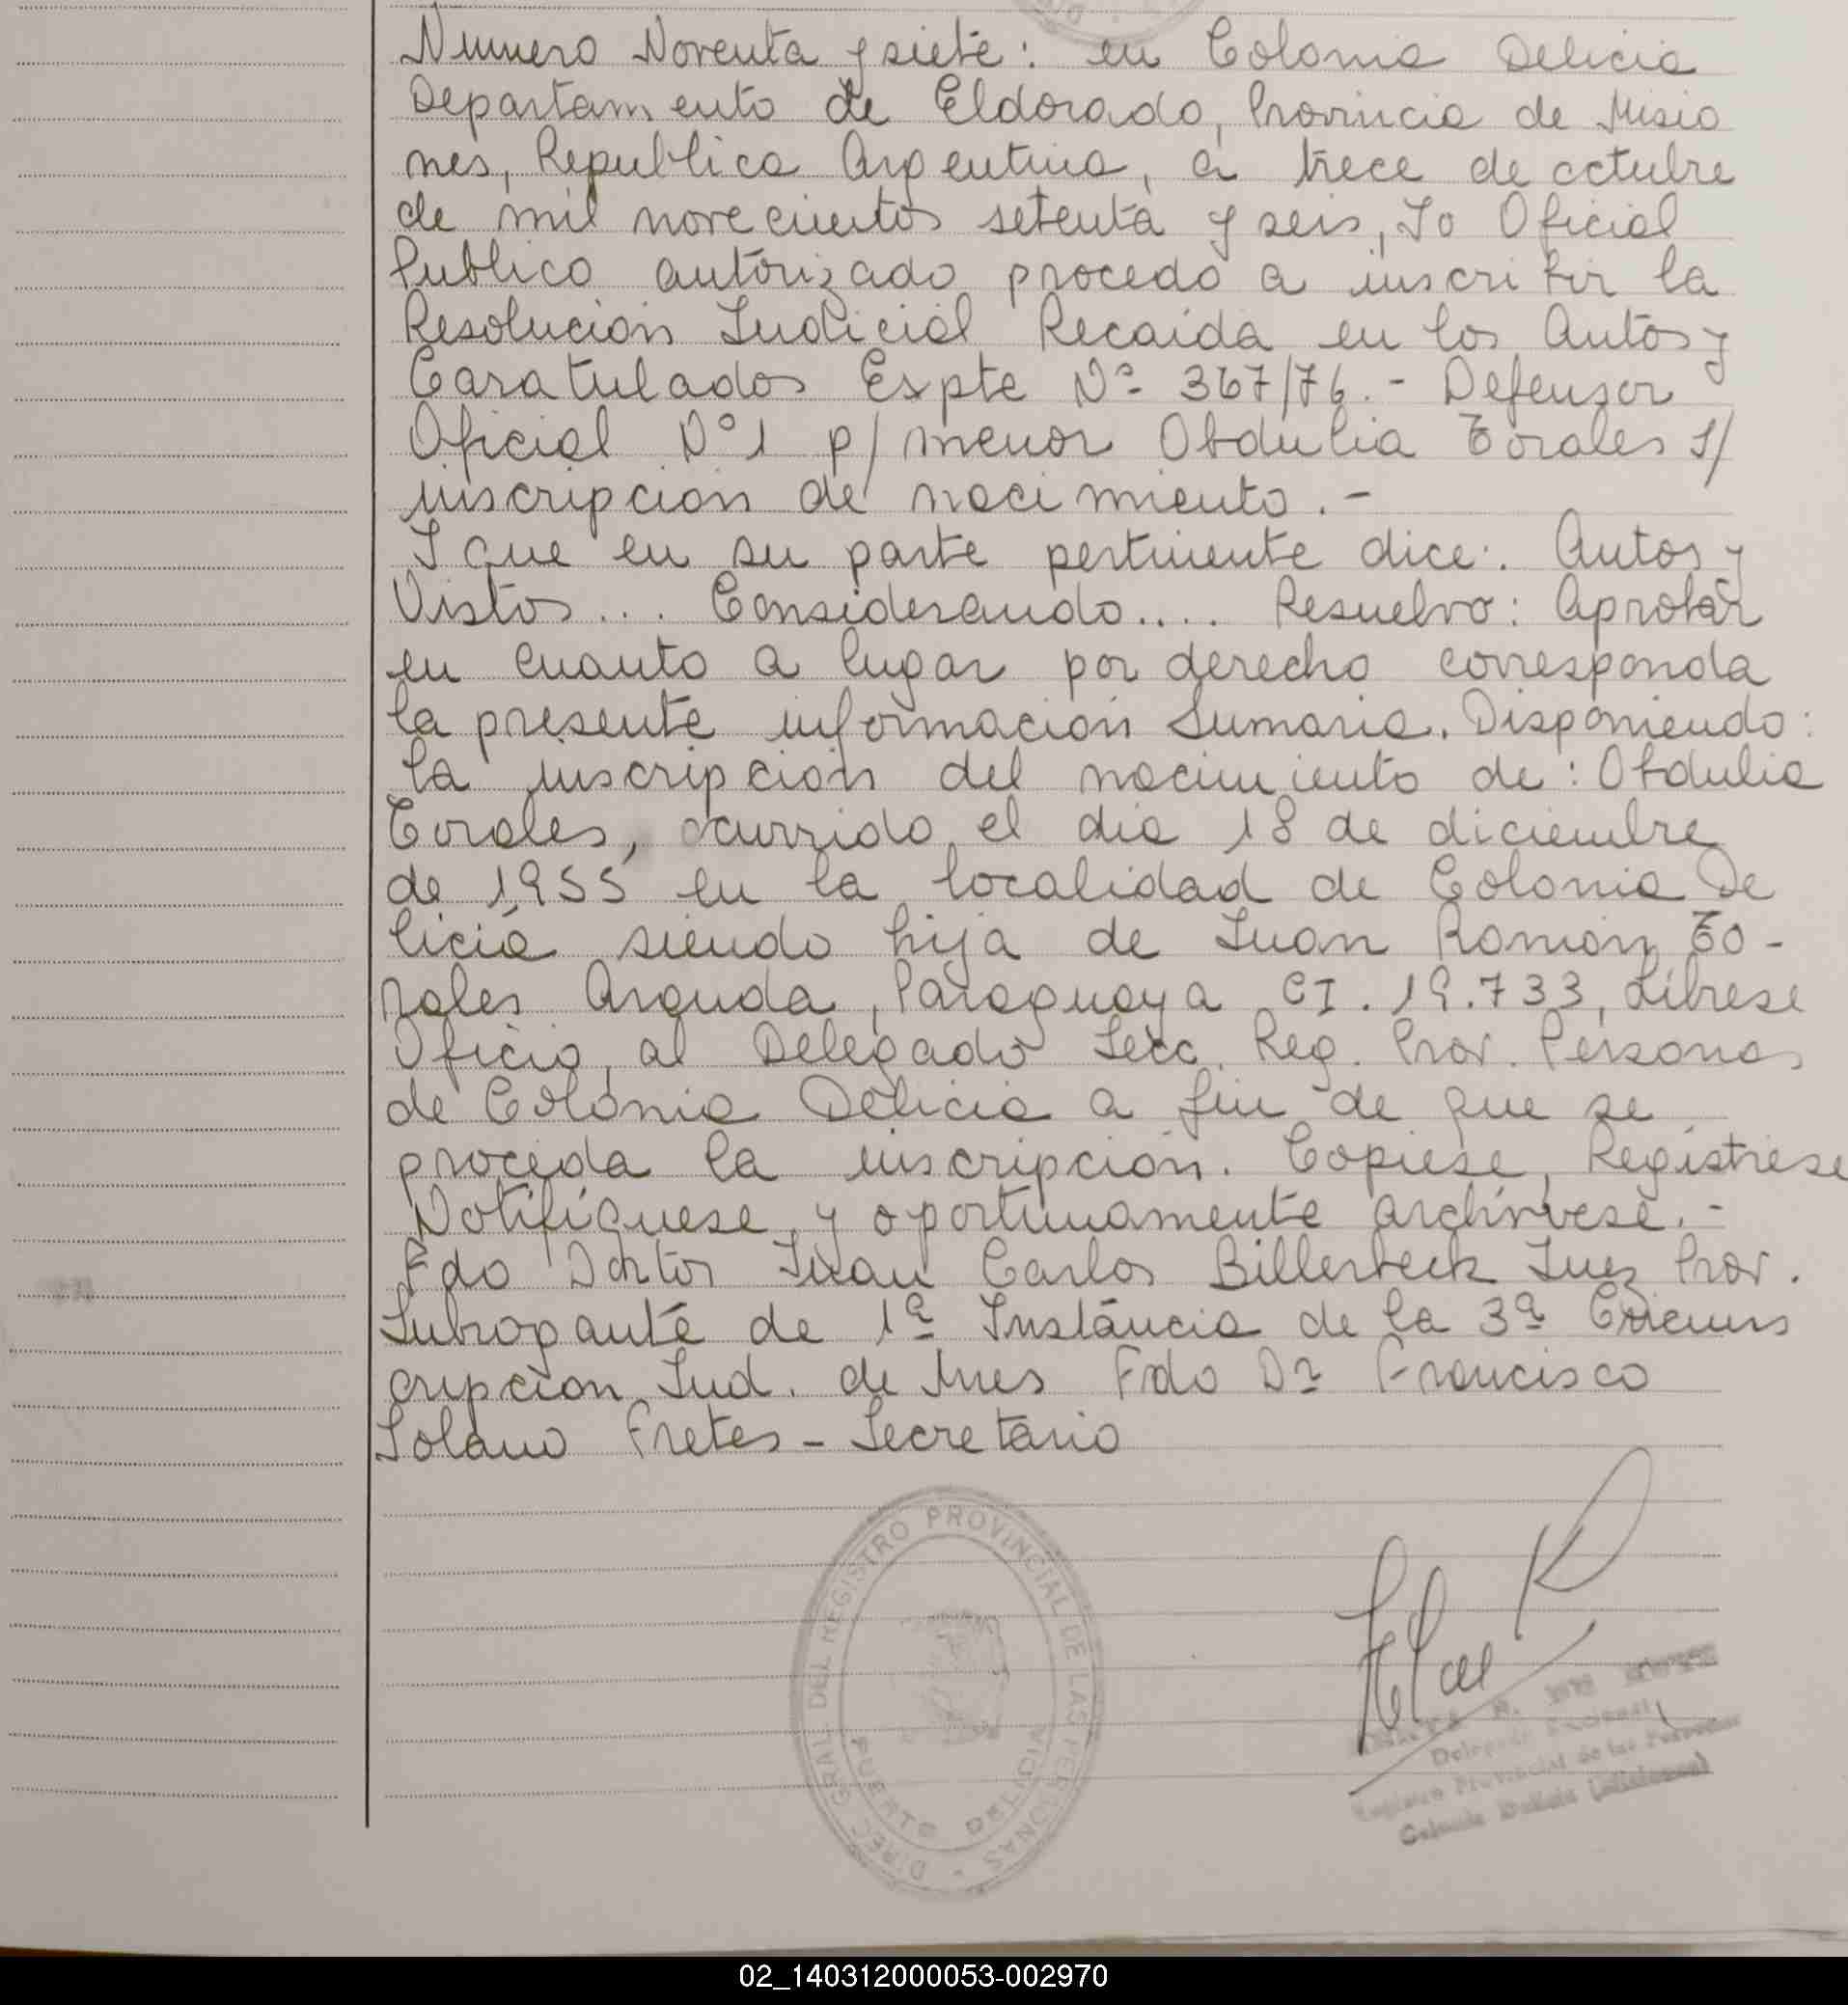 Numero Noventa y siete: en Colonia Delicia
Departamento de Eldorado, Provincia de Misio
nes, Republica Argentina, a trece de octubre
de mil novecientos setenta y seis, Yo Oficial
Publico autorizado procedo a inscribir la
Resolución Judicial Recaída en los Autos y
Caratulados Expte Nº 367/76.- Defensor
Oficial Nº1 p/ menor Obdulia Torales S/
inscripcion de nacimiento.-
Y que en su parte pertinente dice: Autos y
Vistos... Considerando.... Resuelvo: Aprobar
en cuanto a lugar por derecho corresponda
la presente información Sumaria. Disponiendo:
la inscripción del nacimiento de: Obdulia
Torales, ocurrido el dia 18 de diciembre
de 1955 en la localidad de Colonia De
licia siendo hija de Juan Ramón To-
rales Arguda, Paraguaya CI. 19.733, Líbrese
Oficio al Delegado Secc. Reg. Prov. Personas
de Colonia Delicia a fin de que se
proceda la inscripción. Copiese, Regístrese
Notifíquese y oportunamente archívese.-
Fdo Doctor Juan Carlos Billerbeck Juez Prov.
Subrogante de 1ª Instancia de la 3ª Circuns
cripcion Jud. de Mnes Fdo Dr Francisco
Solano Fretes - Secretario
DIREC. GRAL. DEL REGISTRO PROVINCIAL DE LAS PERSONAS -
PUERTO DELICIA
Delegado Seccional
Registro Provincial de las Personas
Colonia Delicia (Misiones)
02_140312000053-002970